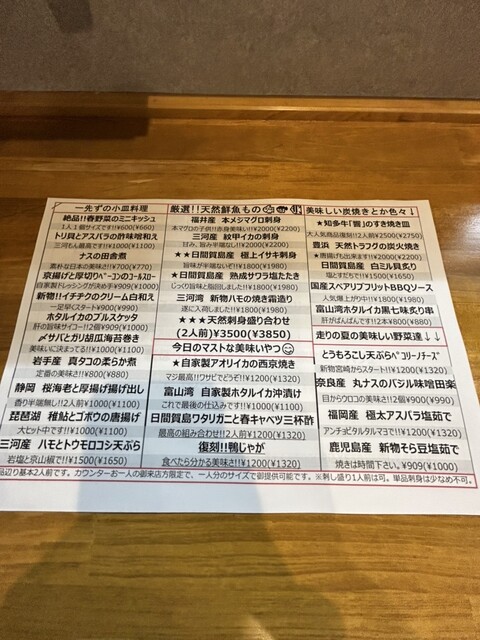 一先ずの小皿料理
絶品!!春野菜のミニキッシュ
1人1個サイズです!!¥600(¥660)
トリ貝とアスパラの酢味噌和え
三河も人最高です!!¥1000(¥1100)
ナスの田舎煮
素朴な日本の美味さ!!¥700(¥770)
京揚げと厚切りベーコンのコールスロー
自家製ドレッシングが決め手!!¥900(¥990)
新物!!イチヂクのクリーム白和え
一足早くスタート¥900(¥990)
ホタルイカのブルスケッタ
肝の旨味サイコー!!2個¥909(¥1000)
〆サバとガリ胡瓜海苔巻き
美味いに決まってる!!¥1000(¥1100)
岩手産 真タコの柔らか煮
定番の美味さ!!¥800(¥880)
静岡 桜海老と厚揚げ揚げ出し
香り半端無し!!2人前¥1200(¥1320)
琵琶湖 稚鮎とゴボウの唐揚げ
大ヒット中です!!¥1000(¥1100)
三河産 ハモとトウモロコシ天ぷら
岩塩と京山椒で!!¥1500(¥1650)
厳選!!天然鮮魚もの
福井産 本メジマグロ刺身
本マグロの子供!!赤身美味い!!¥2000(¥2200)
三河産 紋甲イカの刺身
甘み、旨み半端なし!!¥2000(¥2200)
★★日間賀島産 極上イサキ刺身
旨味が半端ないぜ!!¥1800(¥1980)
★★日間賀島産 熟成サワラ塩たたき
じっくり旨味と脂回しました!!¥1800(¥1980)
三河湾 新物ハモの焼き霜造り
遂に入荷しました!!¥1800(¥1980)
★★★天然刺身盛り合わせ
(2人前)¥3500(¥3850)
今日のマストな美味いやつ😋
★自家製アオリイカの西京焼き
マジ最高!!ワサビでどうぞ!!¥1200(¥1320)
富山湾 自家製ホタルイカ沖漬け
これで最後の仕込みです!!¥1000(¥1100)
日間賀島産ワタリガニと春キャベツ三杯酢
最高の組み合わせ!!2人前¥1200(¥1320)
復刻!!鴨じゃが
食べたら分かる美味さ!!¥1200(¥1320)
美味しい炭焼きとか色々↓
★知多牛「響」のすき焼き皿
大人気商品復刻!!2人前¥2500(¥2750)
豊浜 天然トラフグの炭火焼き
★唐揚げも出来ます!!¥2000(¥2200)
日間賀島産 白ミル貝炙り
塩とすだちで!!¥1500(¥1650)
国産スペアリブフリットBBQソース
人気爆上がり中!!¥1800(¥1980)
富山湾産ホタルイカ黒七味炙り串
肝がぱんぱんです!!2本¥800(¥880)
走りの夏の美味しい野菜達↓↓
とうもろこし天ぷらペコリーノチーズ
新物宮崎からスタート!!¥1200(¥1320)
奈良産 丸ナスのバジル味噌田楽
目からウロコの美味さ!!2個¥900(¥990)
福岡産 極太アスパラ塩茹で
アンチョビタルタルマヨで!!¥1200(¥1320)
鹿児島産 新物そら豆塩茹で
焼きは時間下さい。¥909(¥1000)
品辺り基本2人前です。カウンターお一人の御来店方限定で、一人分のサイズで御提供可能です。※刺し盛り1人前は可。単品刺身は少なめ不可。